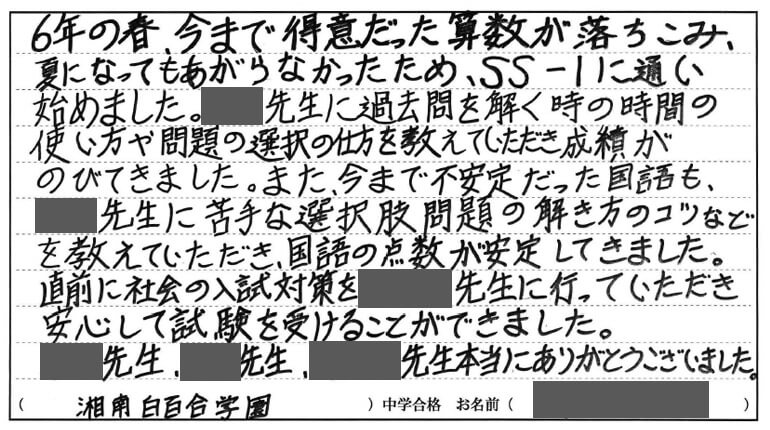 6年の春、今まで得意だった算数が落ちこみ、
夏になってもあがらなかったため、SS-1に通い
始めました。先生に過去問を解く時の時間の
使い方や問題の選択の仕方を教えていただき成績が
のびてきました。また、今まで不安定だった国語も、
先生に苦手な選択肢問題の解き方のコツなど
を教えていただき、国語の点数が安定してきました。
直前に社会の入試対策を先生に行っていただき
安心して試験を受けることができました。
先生、先生、先生本当にありがとうございました。
(湘南白百合学園)中学合格 お名前()